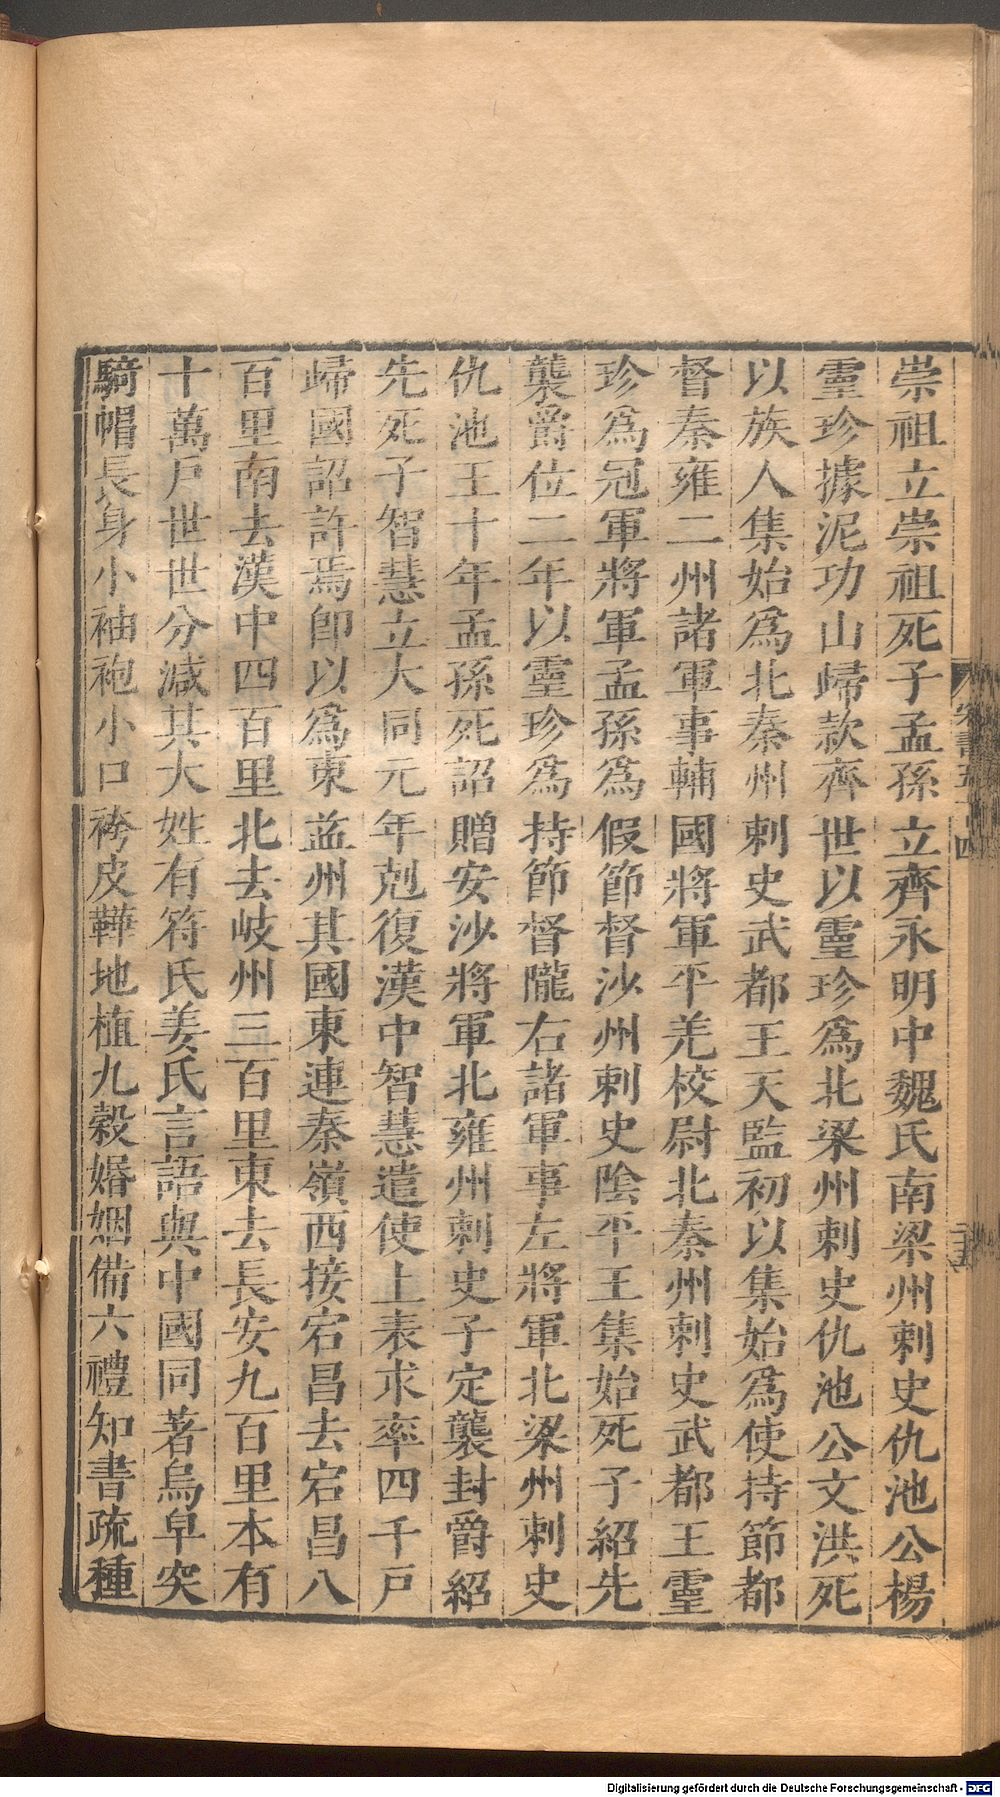 崇祖立崇祖死子孟孫立齊永明中魏氏南梁州刺史仇池公楊
靈珍據泥功山歸款齊世以靈珍爲北梁州刺史仇池公文洪死
以族人集始爲北秦州刺史武都王天監初以集始爲使持節都
督秦雍二州諸軍事輔國將軍平羌校尉北秦州刺史武都王靈
珍爲冠軍將軍孟孫爲假節督沙州刺史陰平王集始死子紹先
襲爵位二年以靈珍爲持節督隴右諸軍事左將軍北梁州刺史
仇池王十年孟孫死詔贈安沙將軍北雍州刺史子定襲封爵紹
先死子智慧立大同元年剋復漢中智慧遣使上表求率四千戸
歸國詔許焉卽以爲東益州其國東連秦嶺西接宕昌去宕昌八
百里南去漢中四百里北去岐州三百里東去長安九百里本有
十萬戸世世分減其大姓有符氏姜氏言語與中國同著烏皁突
騎帽長身小袖袍小口袴皮鞾地植九穀婚姻備六禮知書疏種
Digitalisierung gefördert durch die Deutsche Forschungsgemeinschaft - DFG